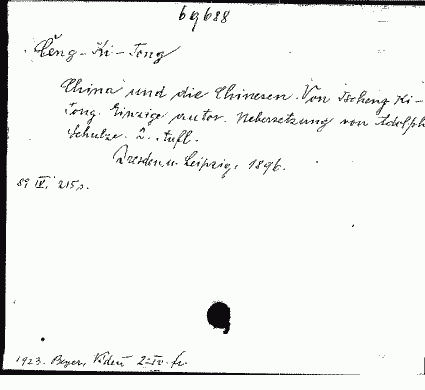 69688
Čeng-Ki-Tong
China und die Chinesen. Von Tscheng Ki-
Tong. Einzige autor. Uebersetzung von Adolph
Schulze. 2. Aufl.
Dresden u. Leipzig, 1896.
8º IV, 215 s.
1923. Beyer, Vídeň